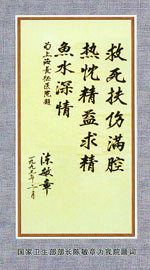 救死扶伤满腔
热忱精益求精
鱼水深情
为上海长征医院题
陈敏章
一九九六年二月
国家卫生部部长陈敏章为我院题词